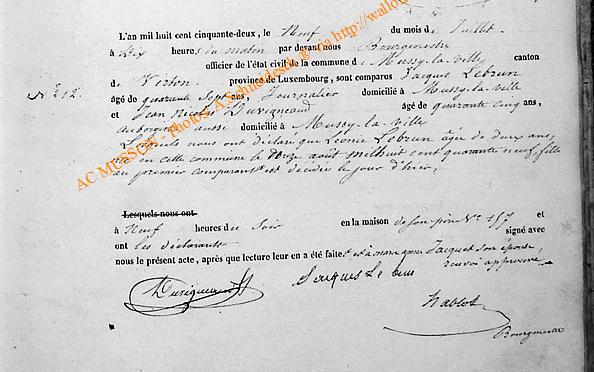 L'an mil huit cent cinquante-deux, le Neuf du mois de Juillet
à dix heures du matin par devant nous Bourgmestre
officier de l'état civil de la commune de Mussy-la-ville canton
de Virton, province de Luxembourg, sont comparus Jacques Lebrun
N° 12.
âgé de quarante sept ans, Journalier domicilié à Mussy-la-ville
et Jean Nicolas Duvigneaud âgé de quarante cinq ans,
Aubergiste aussi domicilié à Mussy-la-ville
Lesquels nous ont déclaré que Léonie Lebrun âgée de deux ans,
née en cette commune le douze août mil huit cent quarante neuf, fille
du premier comparant est décédée le jour d'hier,
Lesquels nous ont
à Neuf heures du Soir en la maison de son père N° 157 et
ont les déclarants signé avec
nous le présent acte, après que lecture leur en a été faite et à Jacquet son épouse
renvoi approuvé
Duvigneaud
Jacques Le brun
Bourgmestre
AC MUSSON - Photos A.Schneidesch @ via http://wallo